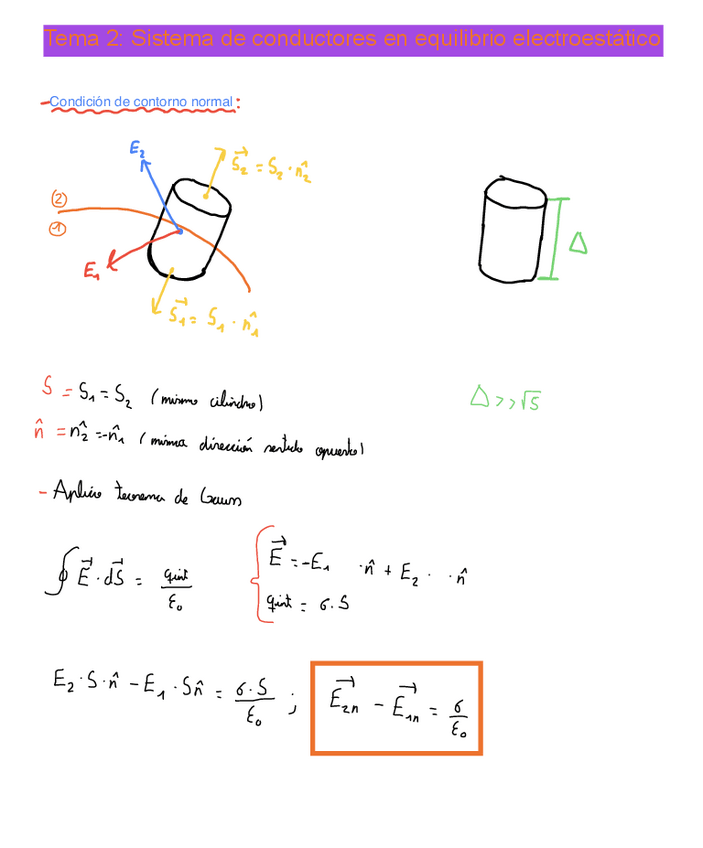 Tema 2: Sistema de conductores en equilibrio electroestático
-Condición de contorno normal:
E₂
S⃗₂ = S₂ · n̂₂
②
①
E₁
S⃗₁ = S₁ · n̂₁
Δ
S = S₁ = S₂ (mismo cilindro)
Δ >> √S
n̂ = n̂₂ = -n̂₁ (misma dirección sentido opuesto)
- Aplico teorema de Gauss
∮ E⃗ · dS⃗ = qint / ε₀
E⃗ = -E₁ · n̂ + E₂ · · n̂
qint = σ · S
E₂ · S · n̂ - E₁ · S n̂ = σ · S / ε₀ ; E⃗₂ₙ - E⃗₁ₙ = σ / ε₀